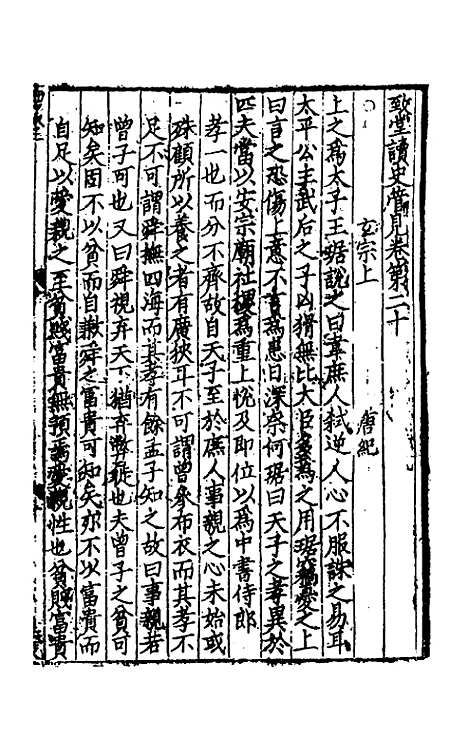 致堂讀史管見卷第二十
玄宗上 唐紀
上之為太子王琚說之曰韋庶人弒逆人心不服誅之易耳
太平公主武后之子凶猾無比大臣多為之用琚竊憂之上
曰言之恐傷上意不言為患日深奈何琚曰天子之孝異於
匹夫當以安宗廟社稷為重上悅及即位以為中書侍郎
孝一也而分不齊故自天子至於庶人事親之心未始或
殊顧所以養之者有廣狹耳不可謂曾參布衣而其孝不
足不可謂舜撫四海而其孝有餘孟子知之故曰事親若
曾子可也又曰舜視弃天下猶弃弊蹝也夫曾子之貧可
知矣固不以貧而自歉舜之富貴可知矣亦不以富貴而
自足以愛親之至貧賤富貴無預焉愛親性也貧賤富貴